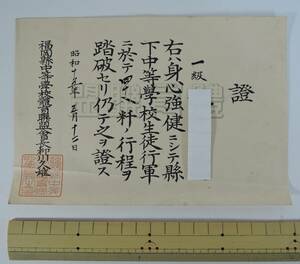 證
一級
右ハ身心強健ニシテ縣
下中等學校生徒行軍
ニ於テ四〇粁ノ行程ヲ
踏破セリ仍テ之ヲ證ス
昭和十五年三月十二日
福岡縣中等學校體育聯盟會長柳川久雄